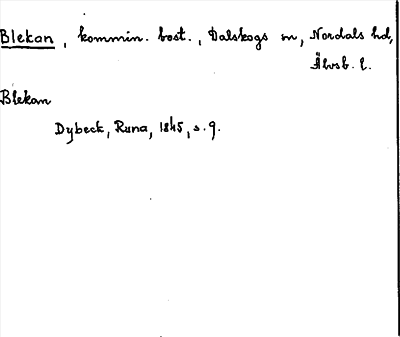 Blekan, kommin. bost., Dalskogs sn, Nordals hd,
Älvsb. l.
Blekan
Dybeck, Runa, 1845, s. 9.